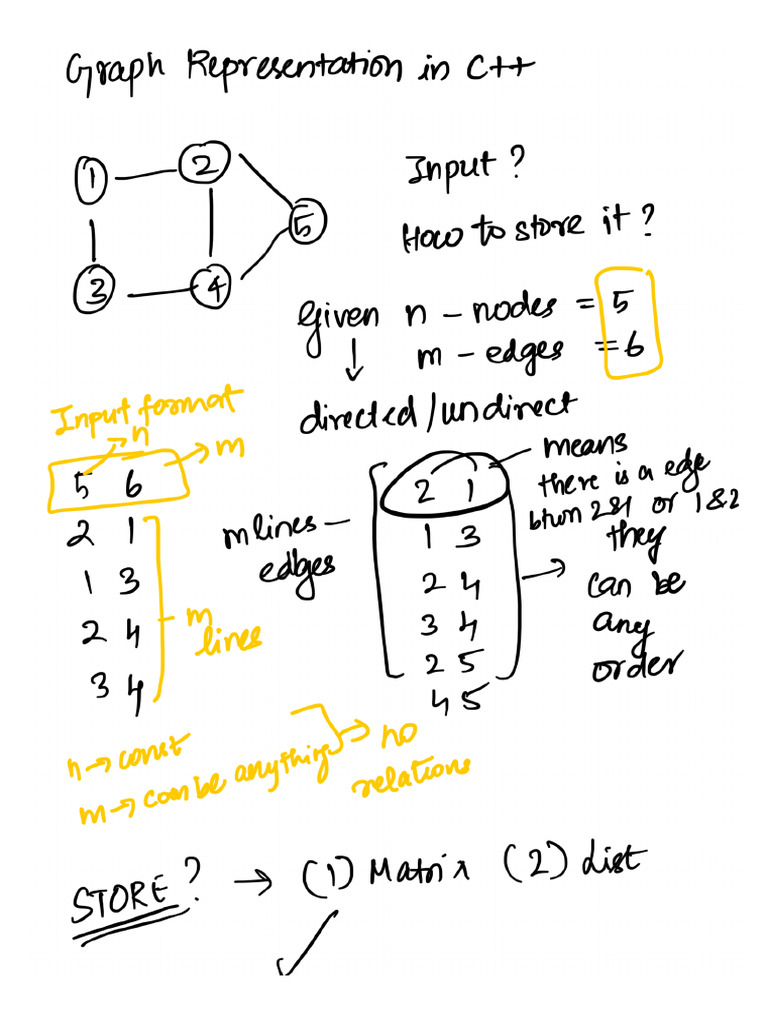 Graph Representation in C++
1 2
5
3 4
Input?
How to store it?
Given n - nodes = 5
m - edges = 6
directed/undirect
Input format
n
5 6 m
2 1
1 3
2 4
3 4
m
lines
m lines -
edges
2 1
1 3
2 4
3 4
2 5
4 5
means
there is a edge
btwn 2&1 or 1&2
they
can be
any
order
n → const
m → can be anything
no
relations
STORE? → (1) Matrix (2) List